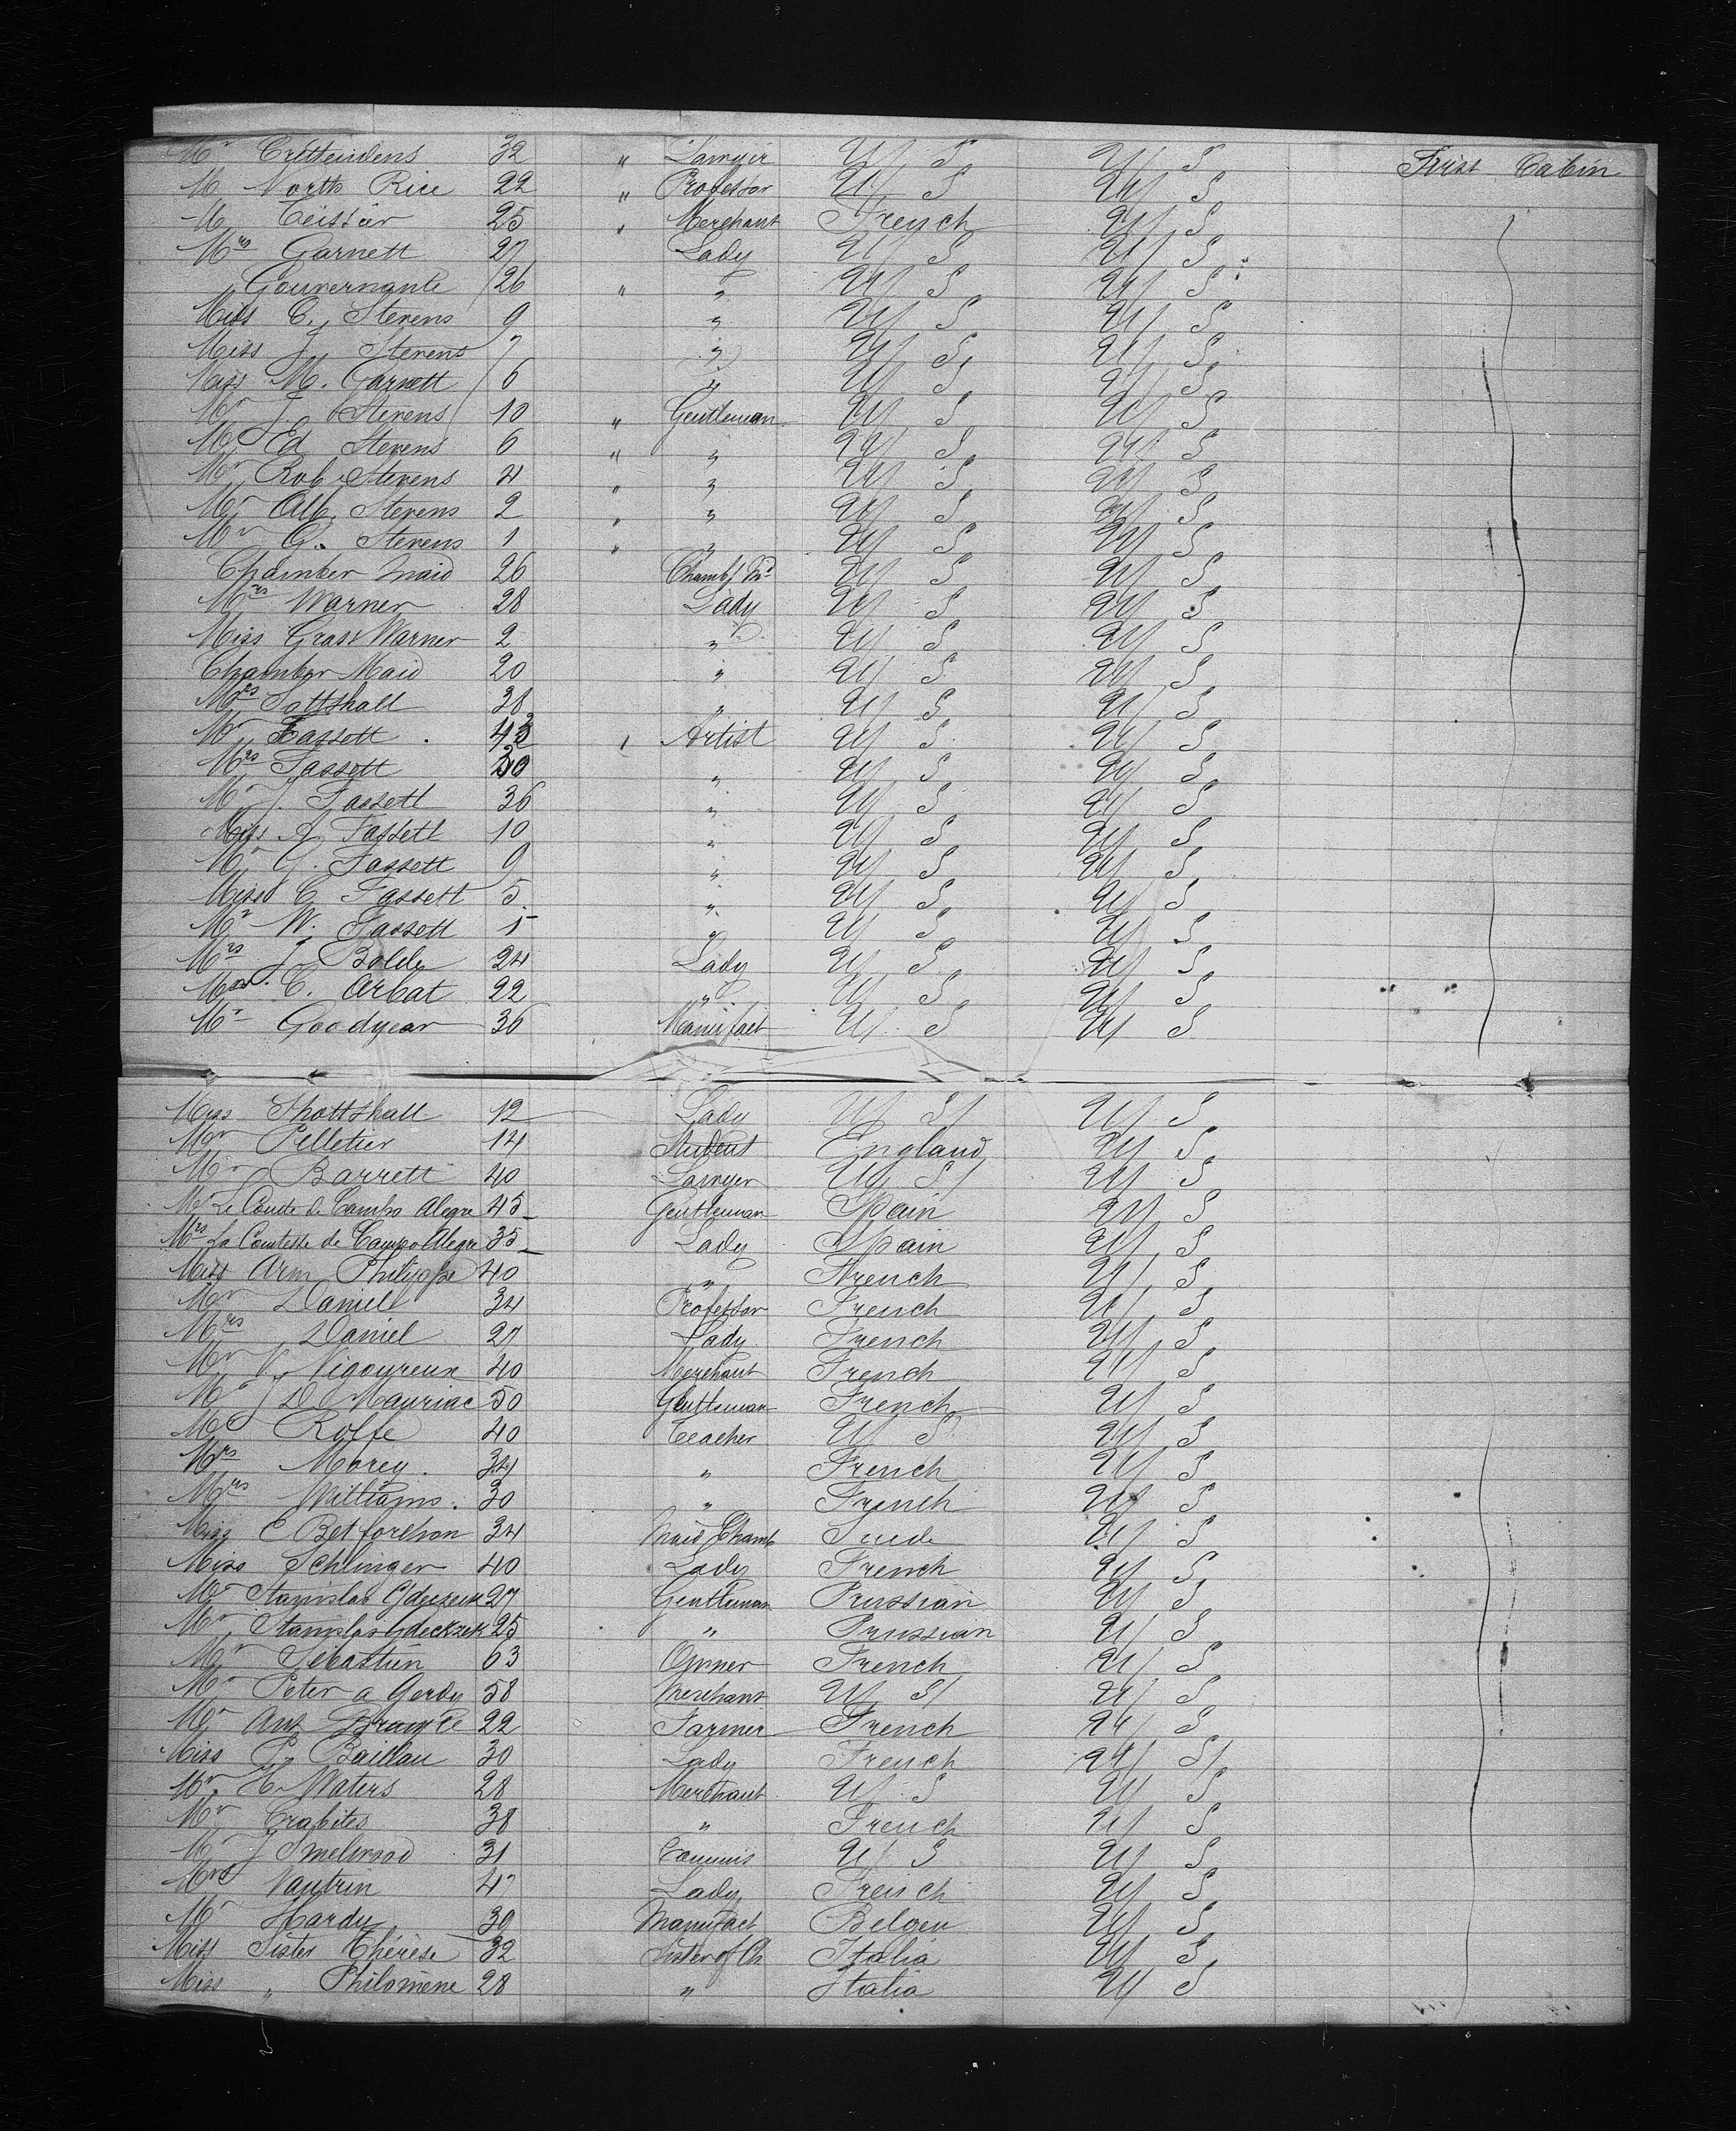 Mr Crittendens 32 " Lawyer U S U S First Cabin
M North Rice 22 " Professor U S U S
M Teissier 25 " Merchant French U S
Mrs Garnett 27 Lady U S U S
Gouvernante 26 " " U S U S
Miss C. Stevens 9 " U S U S
Miss J Stevens 7 " U S U S
Miss M. Garnett 6 " U S U S
Mr J Stevens 10 " Gentleman U S U S
Mr Ed Stevens 6 " " U S U S
Mr Rob Stevens 4 " " U S U S
Mr Alb. Stevens 2 " " U S U S
Mr G. Stevens 1 " " U S U S
Chamber maid 26 Chamb Md U S U S
Mrs Warner 28 Lady U S U S
Miss Grass Warner 2 " U S U S
Chamber Maid 20 " U S U S
Mrs Sottshall 38 " U S U S
Mr Fassett 43 " Artist U S U S
Mrs Fassett " U S U S
Mr J. Fassett 36 " U S U S
Miss J Fassett 10 " U S U S
Mr G. Fassett 9 " U S U S
Miss C Fassett 5 " U S U S
Mr W. Fassett 1 " U S U S
Mrs J Bolde 24 Lady U S U S
C. Arbat 22 " U S U S
Mr Goodyear 36 Manufact U S U S
Miss Shottshall 12 Lady U S U S
Mr Pelletier 14 Student England U S
Mr Barrett 40 Lawyer U S U S
Mr Le Conte de Campo Alegre 45 Gentleman Spain U S
Mrs La Comtesse de Campo Alegre 35 Lady Spain U S
Miss Arm Philippe 40 " French U S
Mr Daniel 34 Professor French U S
Mrs Daniel 27 Lady French U S
Mr V Vigoureux 40 Merchant French U S
Mr J D Mauriac 50 Gentleman French U S
Mr Rolfe 40 Teacher U S U S
Mrs Morey 34 " French U S
Mrs Williams 30 " French U S
Miss C Betforelhon 34 Maid Chamb Suede U S
Miss Schlinger 40 Lady French U S
Mr Stanislab 27 Gentleman Prussian U S
Mr Stanislas 25 " Prussian U S
Mr Sébastien 63 Owner French U S
Mr Peter a Gerdy 58 Merchant U S U S
Mr Ant 22 Farmer French U S
Miss P. Baillau 30 Lady French U S
Mr H Waters 28 Merchant U S U S
Mr Crabites 38 " French U S
Mr J Smelwood 31 Commis U S U S
Vautrin Lady French U S
Mr Hardy 30 Manufact Belgeu U S
Miss Sister Thérèse 32 Sister of Ch Italia U S
Miss " Philomène 28 " Italia U S